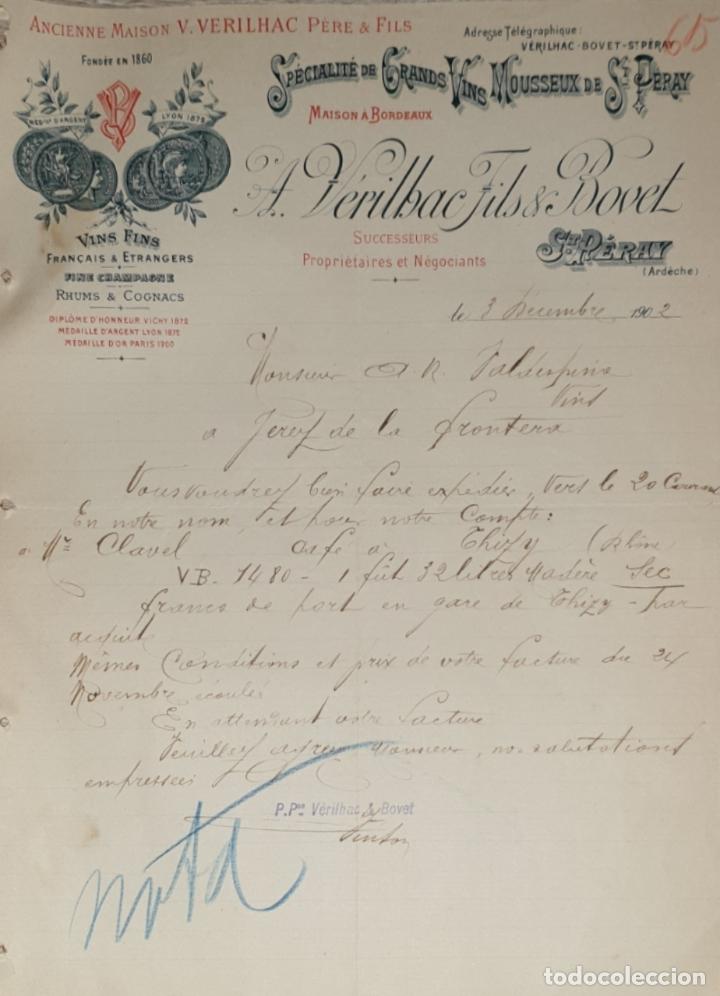 Ancienne Maison V. VERILHAC Père & Fils
Fondée en 1860
Adresse Télégraphique:
VÉRILHAC-BOVET-ST PÉRAY
615
Spécialité de Grands Vins Mousseux de St Péray
Maison à Bordeaux
MED'LE D'ARGENT
LYON 1872
VB
A. Vérilhac Fils & Bovet
Successeurs
Propriétaires et Négociants
St Péray
(Ardèche)
Vins Fins
Français & Etrangers
Fine Champagne
Rhums & Cognacs
DIPLÔME D'HONNEUR VICHY 1872
MÉDAILLE D'ARGENT LYON 1872
MÉDAILLE D'OR PARIS 1900
le 3 Décembre 1902
Monsieur A. R. Valdespino
Vins
a Jerez de la frontera
Vous voudrez bien faire expédier, vers le 20 Courant
En notre nom, et pour notre Compte:
à Mr Clavel café à Thizy (Rhône)
VB. 1480 - 1 fût 32 litres Madère Sec
francs de port en gare de Thizy - par
acquit
Mêmes Conditions et prix de votre facture du 24
Novembre écoulé
En attendant votre facture
Veuillez agréer Monsieur, nos salutations
empressées
P.Pon Vérilhac & Bovet
nota
todocoleccion
todocoleccion.net